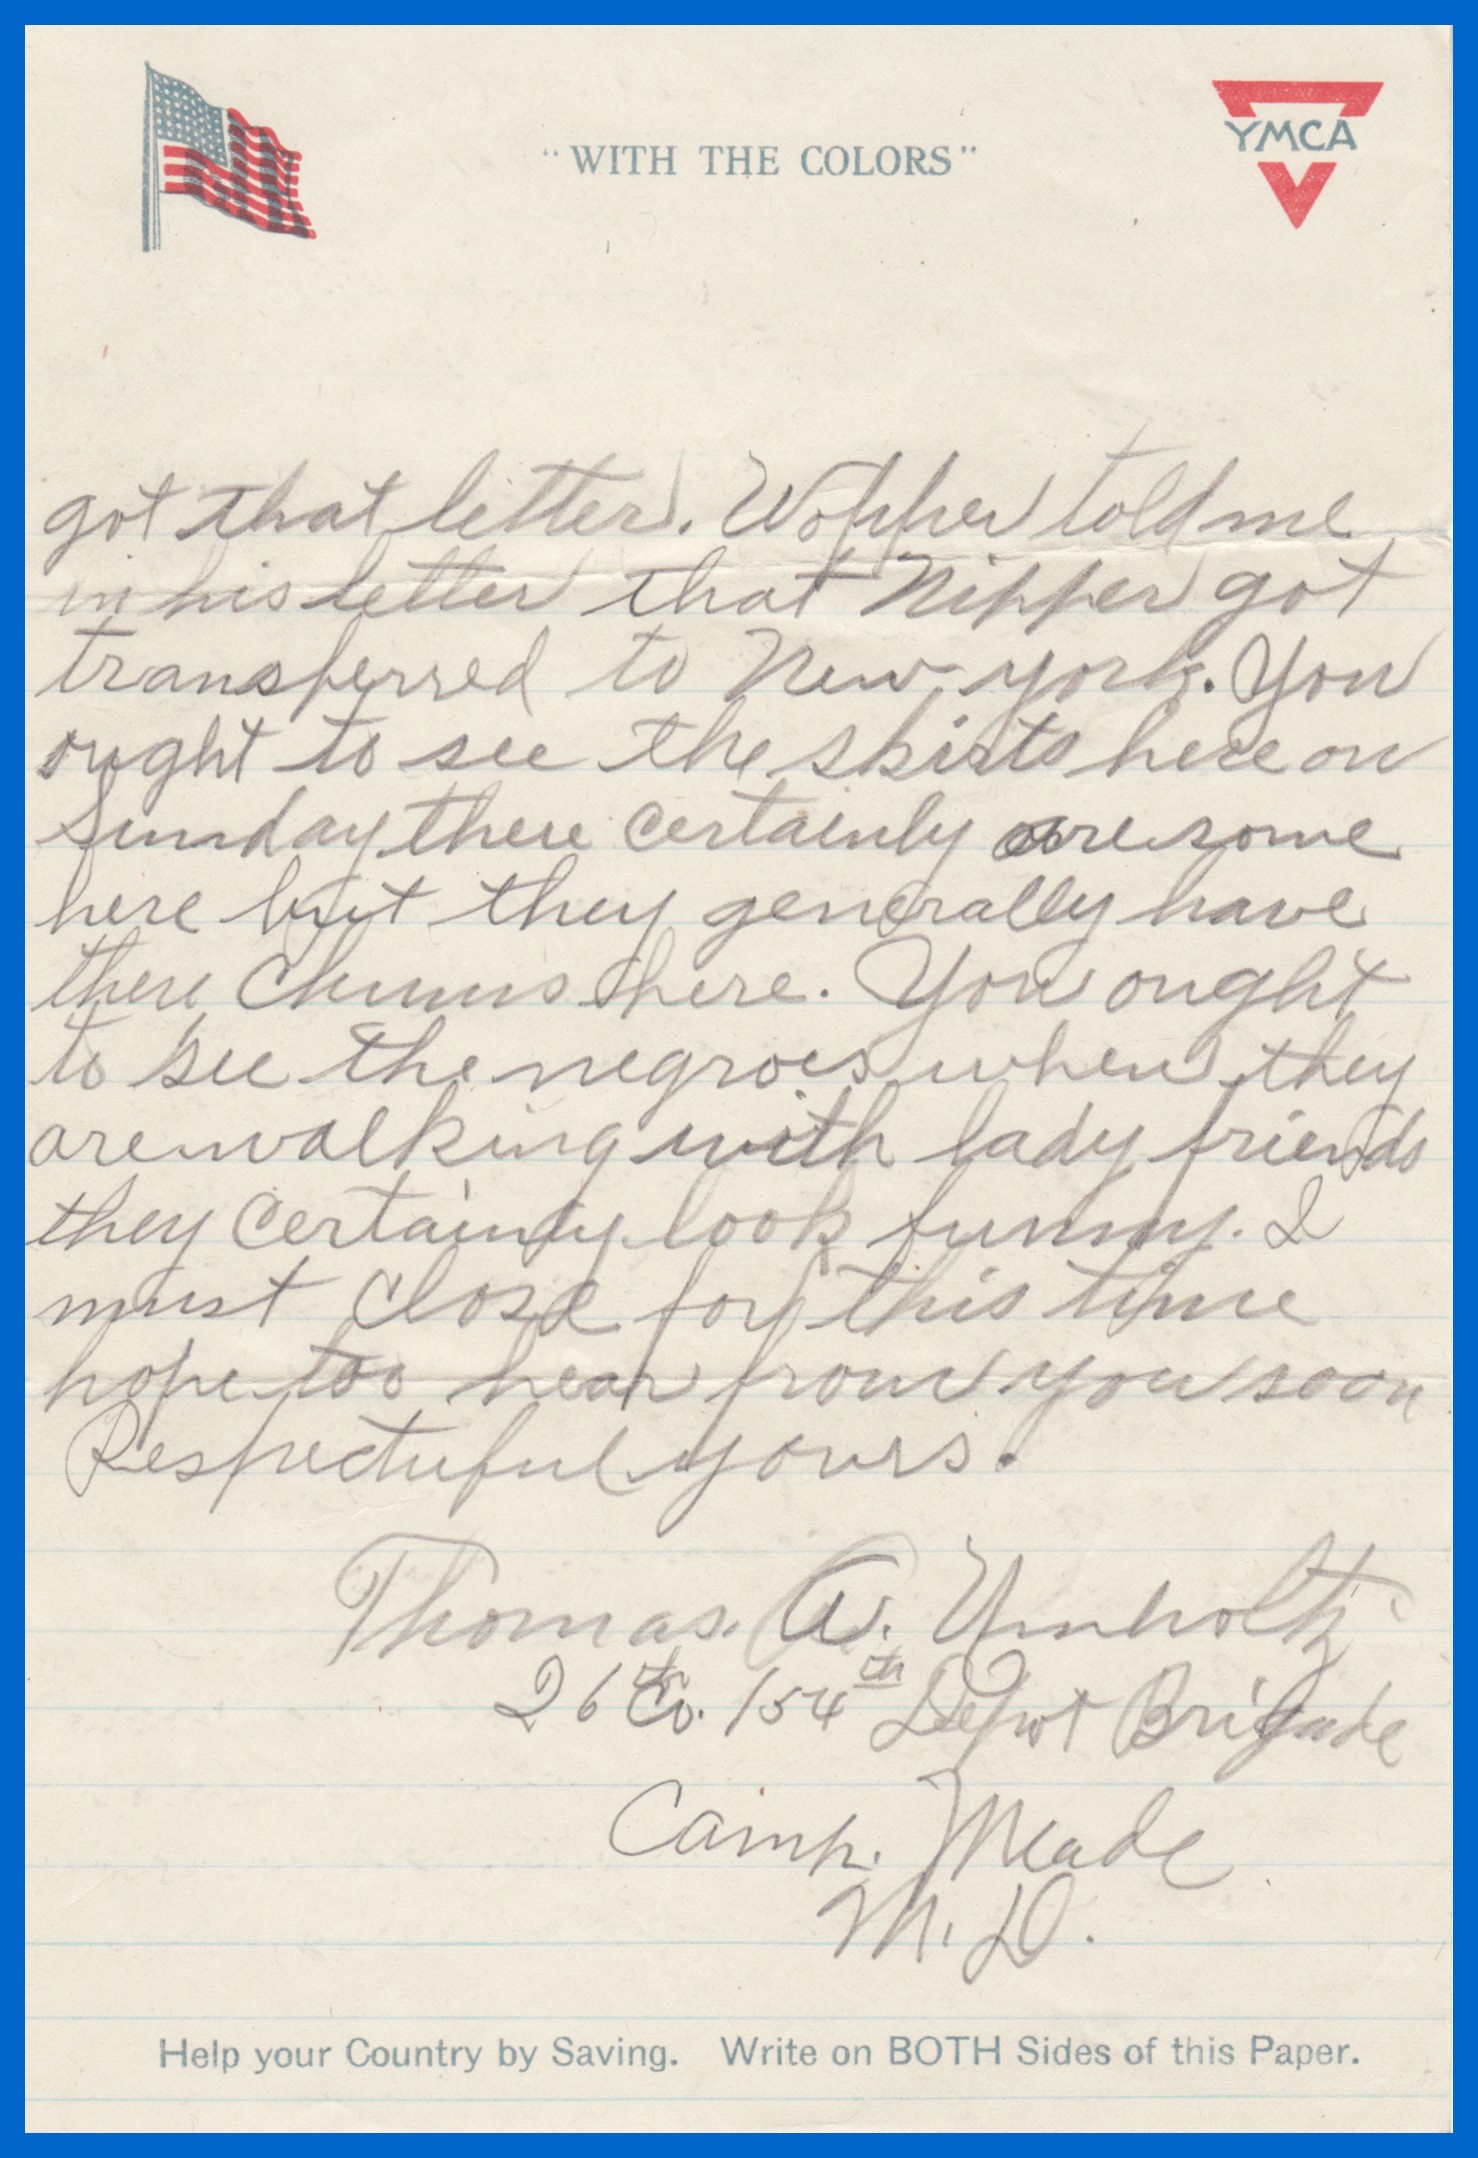 "WITH THE COLORS"
YMCA
got that letter. Wopper told me
in his letter that Nipper got
transferred to New york. You
ought to see the skirts here on
Sunday there certainly are some
here but they generally have
there chums here. You ought
to see the negroes when they
are walking with lady friends
they certainly look funny. I
must close for this time
hope too hear from you soon
Respectuful yours.
Thomas. A. Umholtz
26th Co. 154th Depot Brigade
Camp. Meade
M.D.
Help your Country by Saving. Write on BOTH Sides of this Paper.